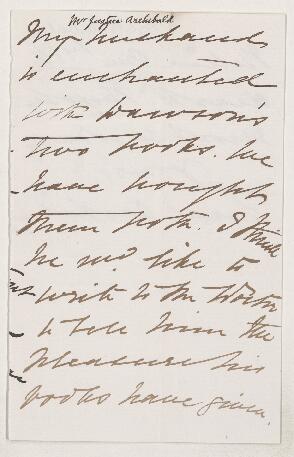 Mrs Justice Archibald
My husband
is enchanted
with Dawson's
two books. We
have bought
them both. I think
he wd. like to
write to the Doctor
to tell him the
pleasure his
books have given.